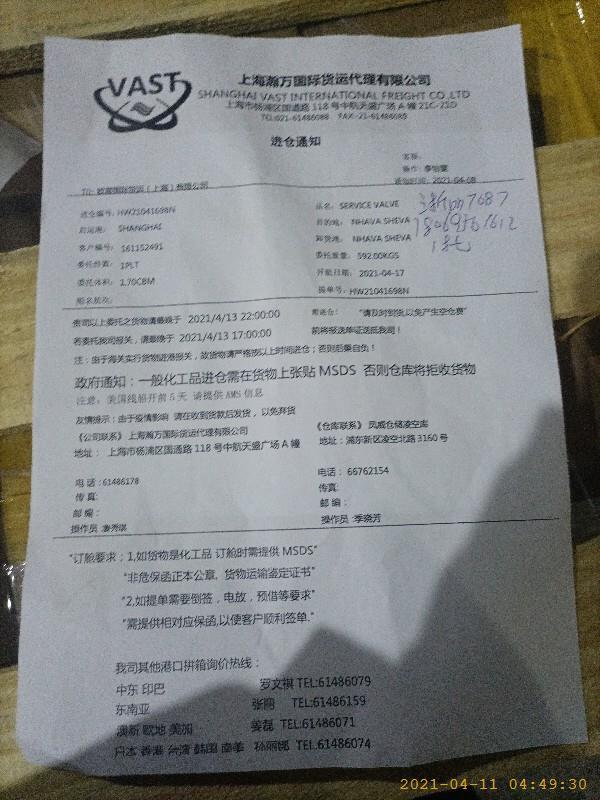 VAST
上海瀚万国际货运代理有限公司
SHANGHAI VAST INTERNATIONAL FREIGHT CO.,LTD
上海市杨浦区国通路 118 号中航天盛广场 A 幢 21C-21D
TEL:021-61486088 FAX:21-61486089
进仓通知
客服:
操作: 李怡雯
通知时间: 2021-04-08
TO: 欧嘉国际货运（上海）有限公司
进仓编号: HW21041698N 品名: SERVICE VALVE
启运港: SHANGHAI 目的地: NHAVA SHEVA
卸货港: NHAVA SHEVA
客户编号: 161152491
委托件数: 1PLT 委托重量: 592.00KGS
委托体积: 1.70CBM 开航日期: 2021-04-17
船名航次: 提单号: HW21041698N
7687
1托
贵司以上委托之货物请最晚于 2021/4/13 22:00:00 前进仓! "请及时到货,以免产生空仓费"
若委托我司报关，请最晚于 2021/4/13 17:00:00 前将报送单证送抵我司!
注：由于海关实行货物进港报关，故货物请严格按以上时间进仓；否则后果自负!
政府通知：一般化工品进仓需在货物上张贴 MSDS 否则仓库将拒收货物
注意：美国线船开前 5 天 请提供 AMS 信息
友情提示：由于疫情影响 请在收到货款后发货，以免弃货
《公司联系》上海瀚万国际货运代理有限公司 《仓库联系》 凤威仓储凌空库
地址： 上海市杨浦区国通路 118 号中航天盛广场 A 幢 地址: 浦东新区凌空北路 3160 号
电话: 61486178 电话: 66762154
传真: 传真:
邮编: 邮编:
操作员 姜秀琪 操作员 季晓芳
"订舱要求：1,如货物是化工品 订舱时需提供 MSDS"
"非危保函正本公章，货物运输鉴定证书"
"2,如提单需要倒签，电放，预借等要求"
"需提供相对应保函,以便客户顺利签单."
我司其他港口拼箱询价热线：
中东 印巴 罗文祺 TEL:61486079
东南亚 张丽 TEL:61486159
澳新 欧地 美加 姜磊 TEL:61486071
日本 香港 台湾 韩国 南美 孙丽娜 TEL:61486074
2021-04-11 04:49:30